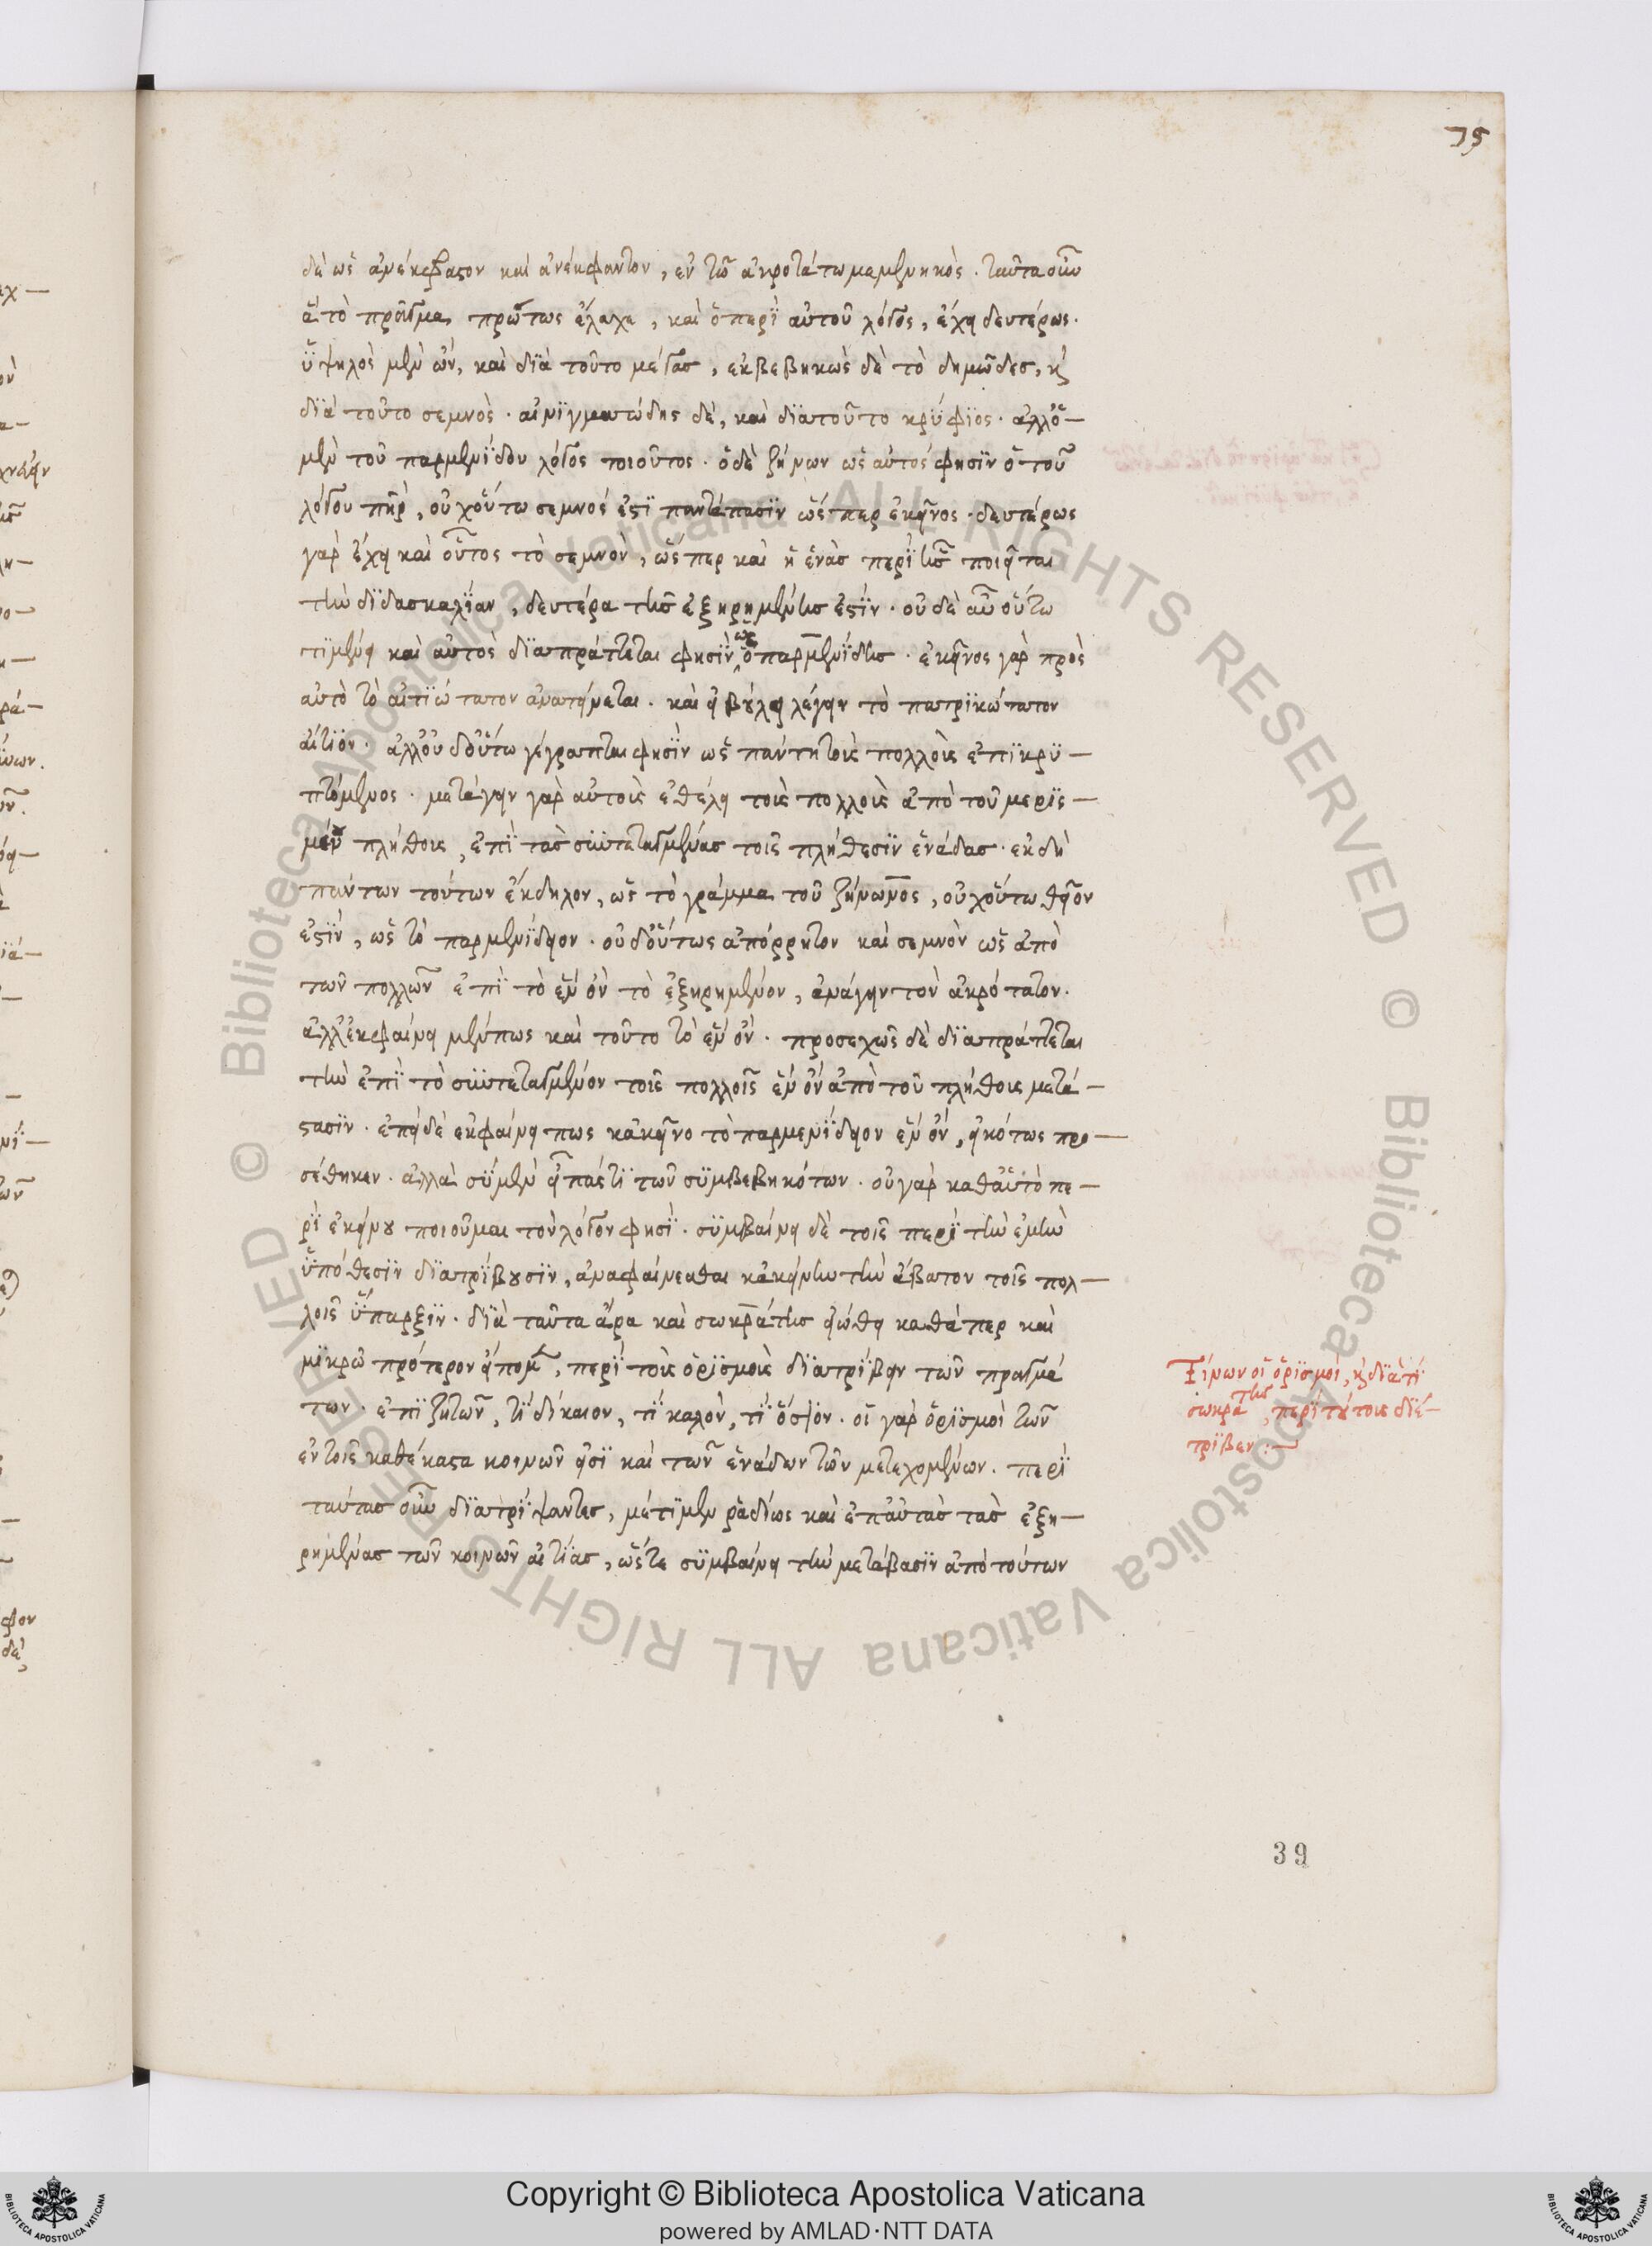 75
δὲ ὡς ἀνέκφραστον καὶ ἀνέκφαντον, ἐν τῶ ἀκροτάτω μεμενηκός. ταῦτα οὖν
ἃ τὸ πρᾶγμα πρώτως ἔλαχε, καὶ ὁ περὶ αὐτοῦ λόγος, ἔχει δευτέρως.
ὑψηλὸς μὲν ὢν, καὶ διὰ τοῦτο μέγας, ἐκβεβηκὼς δὲ τὸ δημῶδες, κ
διὰ τοῦτο σεμνὸς. αἰνιγματώδης δὲ, καὶ διατοῦτο κρύφιος. ἀλλ' ὁ
μὲν τοῦ παρμενίδου λόγος τοιοῦτος. ὁ δὲ ζήνων ὡς αὐτός φησὶν ὁ τοῦ
λόγου πηρ, οὐχ οὕτω σεμνός ἐστι παντάπασιν ὥσπερ ἐκεῖνος. δευτέρως
γὰρ ἔχει καὶ οὗτος τὸ σεμνὸν, ὥσπερ καὶ ἡ ἑνὰς περὶ ἧς ποιεῖται
τὴν διδασκαλίαν, δευτέρα τῆς ἐξηρημένης ἐστίν. οὐδὲ αὖ οὕτω
τὶ μὲν καὶ αὐτὸς διαπράττεται φησὶν ὡς ὁ παρμενίδης. ἐκεῖνος γὰρ πρὸς
αὐτὸ τὸ αἰτιώτατον ἀνατείνεται. καὶ εἰ βούλει λέγειν τὸ πατρικώτατον
αἴτιον. ἀλλ' οὐδ' οὕτω γέγραπται φησὶν ὡς πάντη τοὺς πολλοὺς ἐπικρυ–
πτόμενος. μετάγειν γὰρ αὐτοὺς ἐθέλει τοὺς πολλοὺς ἀπὸ τοῦ μερισ–
μένου πλήθους, ἐπὶ τὰς συντεταγμένας τοῖς πλήθεσιν ἑνάδας. ἐκ δὴ
πάντων τούτων ἔκδηλον, ὡς τὸ γράμμα τοῦ ζήνωνος, οὐχ οὕτω θεῖον
ἐστὶν, ὡς τὸ παρμενίδειον. οὐδ' οὕτως ἀπόρρητον καὶ σεμνὸν ὡς ἀπὸ
τῶν πολλῶν ἐπὶ τὸ ἓν ὂν τὸ ἐξηρημένον, ἀνάγειν τὸν ἀκρότατον.
ἀλλ' ἐκφαίνει μέν πως καὶ τοῦτο τὸ ἓν ὄν. προσεχῶς δὲ διαπράττεται
τὴν ἐπὶ τὸ συντεταγμένον τοῖς πολλοῖς ἓν ὂν ἀπὸ τοῦ πλήθους μετά–
στασιν. ἐπεὶ δὲ ἐκφαίνει πως κἀκεῖνο τὸ παρμενίδειον ἓν ὂν, εἰκότως προ–
σέθηκεν. ἀλλὰ σὺ μὲν εἶπάς τι τῶν συμβεβηκότων. οὐ γὰρ καθ' αὑτὸ πε–
ρὶ ἐκείνου ποιοῦμαι τὸν λόγον φησὶ. συμβαίνει δὲ τοῖς περὶ τὴν ἐμὴν
ὑπόθεσιν διατρίβουσιν, ἀναφαίνεσθαι κἀκείνην τὴν ἄβατον τοῖς πολ–
λοῖς ὕπαρξιν. διὰ ταῦτα ἄρα καὶ σωκράτης εἰώθει καθάπερ καὶ
μικρῶ πρότερον εἴπομεν, περὶ τοὺς ὁρισμοὺς διατρίβειν τῶν πραγμά
των. ἐπιζητῶν, τί δίκαιον, τί καλὸν, τί ὅσιον. οἱ γὰρ ὁρισμοὶ τῶν
ἐν τοῖς καθέκαστα κοινῶν εἰσὶ καὶ τῶν ἑνάδων τῶν μετεχομένων. περὶ
ταύτας οὖν διατρίψαντες, μέτιμεν ῥαδίως καὶ ἐπ' αὐτὰς τὰς ἐξη–
ρημένας τῶν κοινῶν αἰτίας, ὥστε συμβαίνει τὴν μετάβασιν ἀπὸ τούτων
Τίνων οἱ ὁρισμοί, κ διὰ τί
σωκράτης, περὶ τούτους διέ–
τριβεν:–
39
Copyright © Biblioteca Apostolica Vaticana
powered by AMLAD·NTT DATA